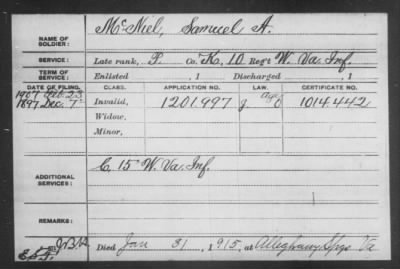 NAME OF SOLDIER: McNiel, Samuel A.
SERVICE: Late rank, P. Co. K, 10 Reg't W. Va. Inf.
TERM OF SERVICE: Enlisted , 1 Discharged , 1
DATE OF FILING. CLASS. APPLICATION NO. LAW. CERTIFICATE NO.
1907 Feb. 23 Age
1897 Dec. 7 Invalid, 1201997 1014442
Widow,
Minor,
ADDITIONAL SERVICES: C, 15" W. Va. Inf.
REMARKS:
Died Jan 31, 1915, at Alleghany Spgs Va